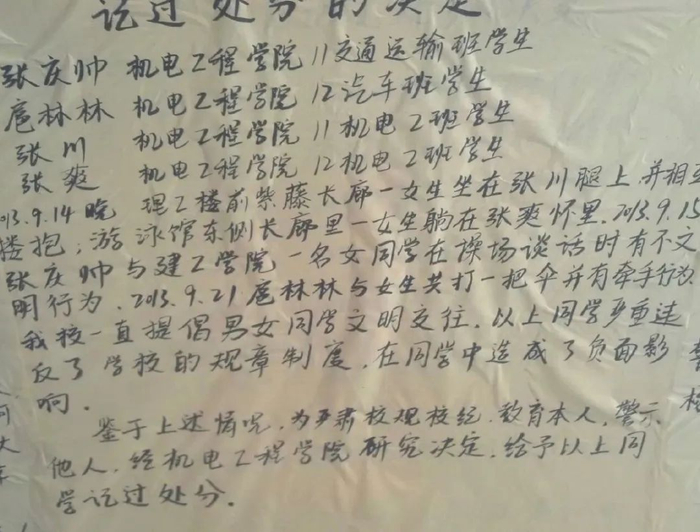 记过处分的决定
张庆帅 机电工程学院11交通运输班学生
扈林林 机电工程学院12汽车班学生
张川 机电工程学院11机电2班学生
张爽 机电工程学院12机电2班学生
013.9.14晚 理工楼前紫藤长廊一女生坐在张川腿上,并相互
搂抱;游泳馆东侧长廊里一女生躺在张爽怀里.2013.9.15
张庆帅与建工学院一名女同学在操场谈话时有不文
明行为.2013.9.21扈林林与女生共打一把伞并有牵手行为.
我校一直提倡男女同学文明交往.以上同学严重违
反了学校的规章制度,在同学中造成了负面影
响.
鉴于上述情况,为严肃校规校纪.教育本人,警示
他人.经机电工程学院研究决定,给予以上同
学记过处分.